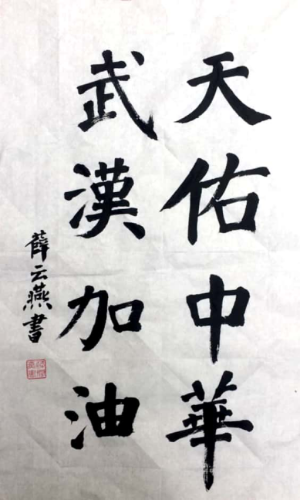 天佑中華
武漢加油
薛云燕書